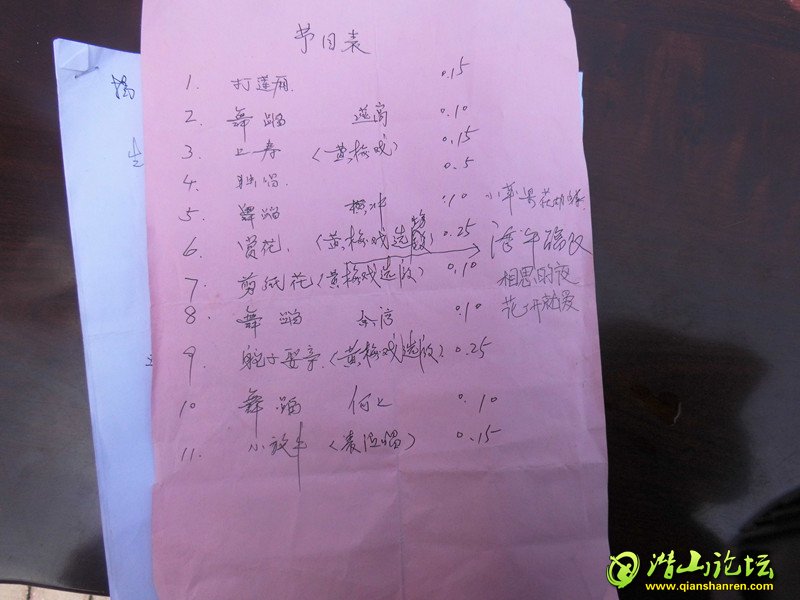 节目表
1. 打莲厢 0.15
2. 舞蹈 莲高 0.10
3. 上寿 (黄梅戏) 0.15
4. 独唱. 0.5
5. 舞蹈 横冲 0.10
6. 赏花. (黄梅戏选段) 0.25
7. 剪纸花 (黄梅戏选段) 0.10
相思的夜
花开就是爱
8. 舞蹈 余湾 0.10
9. 驼子娶亲. (黄梅戏选段) 0.25
10 舞蹈 何上 0.10
11. 小放牛 (表演唱) 0.15
潜山论坛
www.qianshanren.com